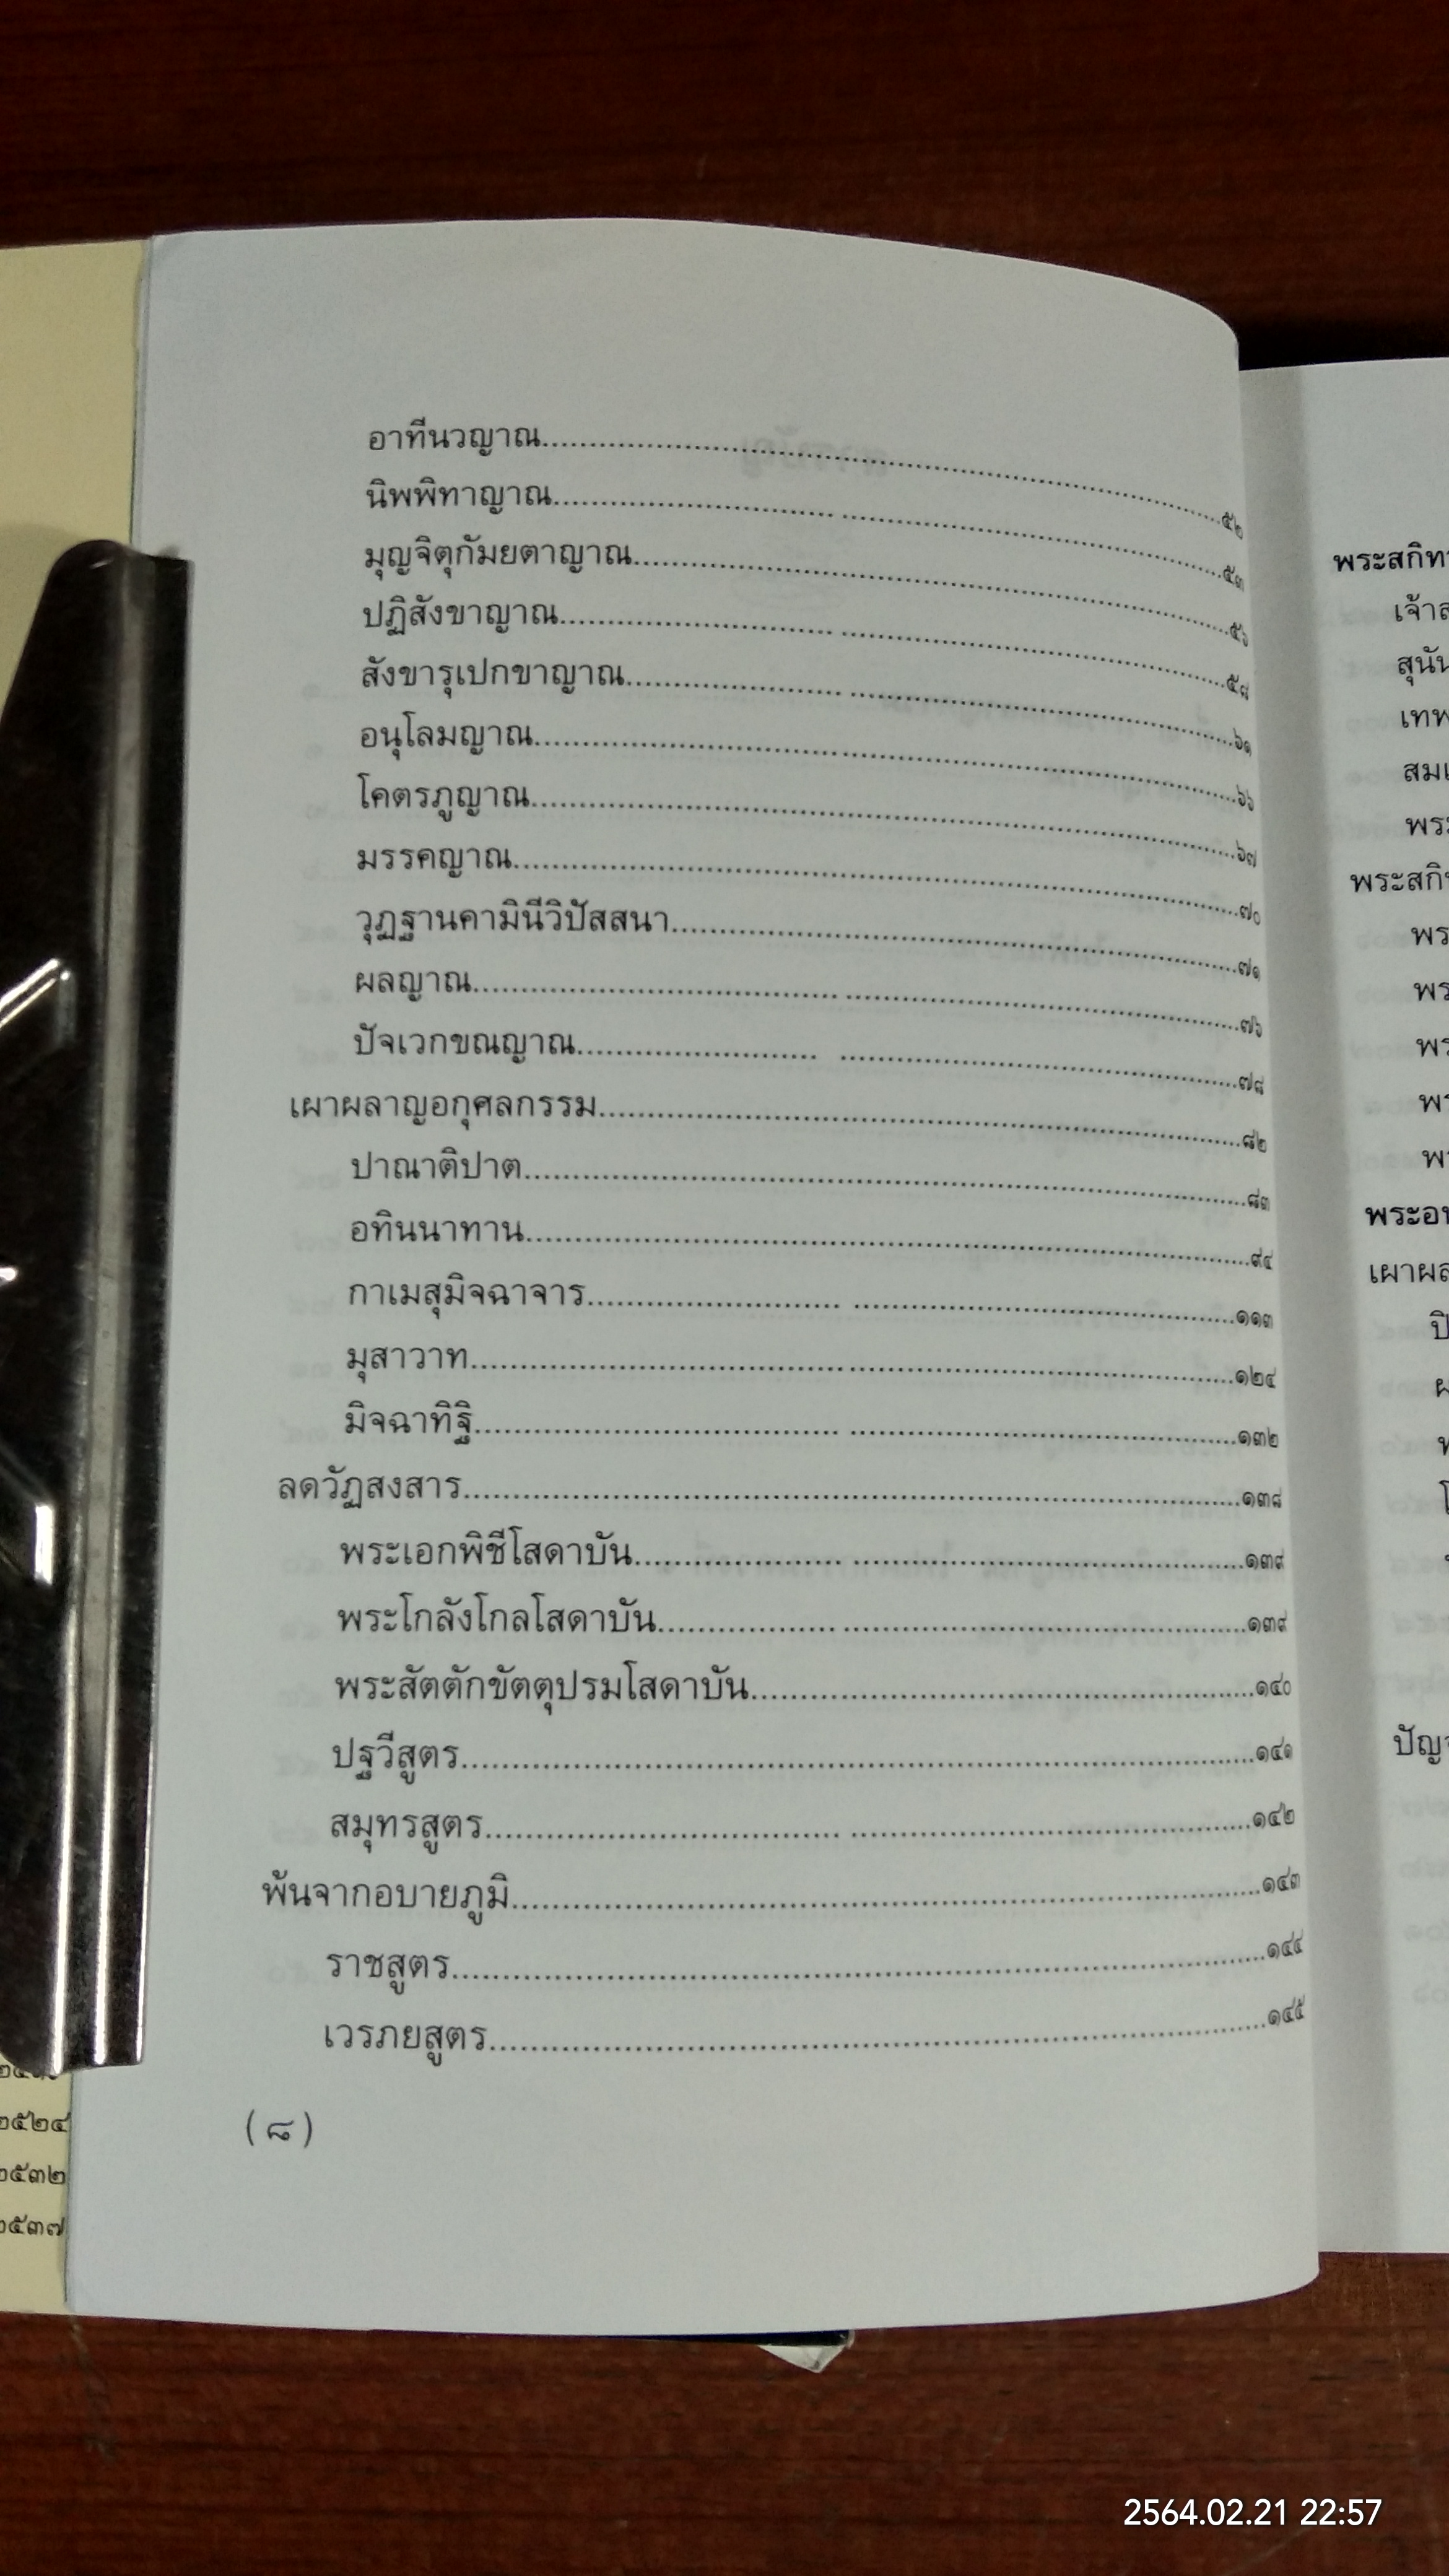 อาทีนวญาณ....................๕๒
นิพพิทาญาณ....................๕๓
มุญจิตุกัมยตาญาณ....................๕๖
ปฏิสังขาญาณ....................๕๘
สังขารุเปกขาญาณ....................๖๑
อนุโลมญาณ....................๖๖
โคตรภูญาณ....................๖๗
มรรคญาณ....................๗๐
วุฏฐานคามินีวิปัสสนา....................๗๑
ผลญาณ....................๗๖
ปัจเวกขณญาณ....................๗๘
เผาผลาญอกุศลกรรม....................๘๒
ปาณาติปาต....................๘๓
อทินนาทาน....................๙๔
กาเมสุมิจฉาจาร....................๑๑๓
มุสาวาท....................๑๒๔
มิจฉาทิฐิ....................๑๓๒
ลดวัฏสงสาร....................๑๓๘
พระเอกพิชีโสดาบัน....................๑๓๙
พระโกลังโกลโสดาบัน....................๑๓๙
พระสัตตักขัตตุปรมโสดาบัน....................๑๔๐
ปฐวีสูตร....................๑๔๑
สมุทรสูตร....................๑๔๒
พ้นจากอบายภูมิ....................๑๔๓
ราชสูตร....................๑๔๔
เวรภยสูตร....................๑๔๕
(๘)
๒๕๒๔
๒๕๓๒
๒๕๓๗
พระสกิท
เจ้า
สุนัน
เทพ
พระ
พระสกิ
พร
พร
พร
เผาผล
ปัญ
2564.02.21 22:57